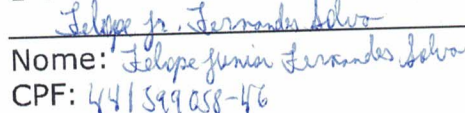 Felope Jr. Fernandes Solvo
Nome: Felope Junior Fernandes Solvo
CPF: 441599058-46